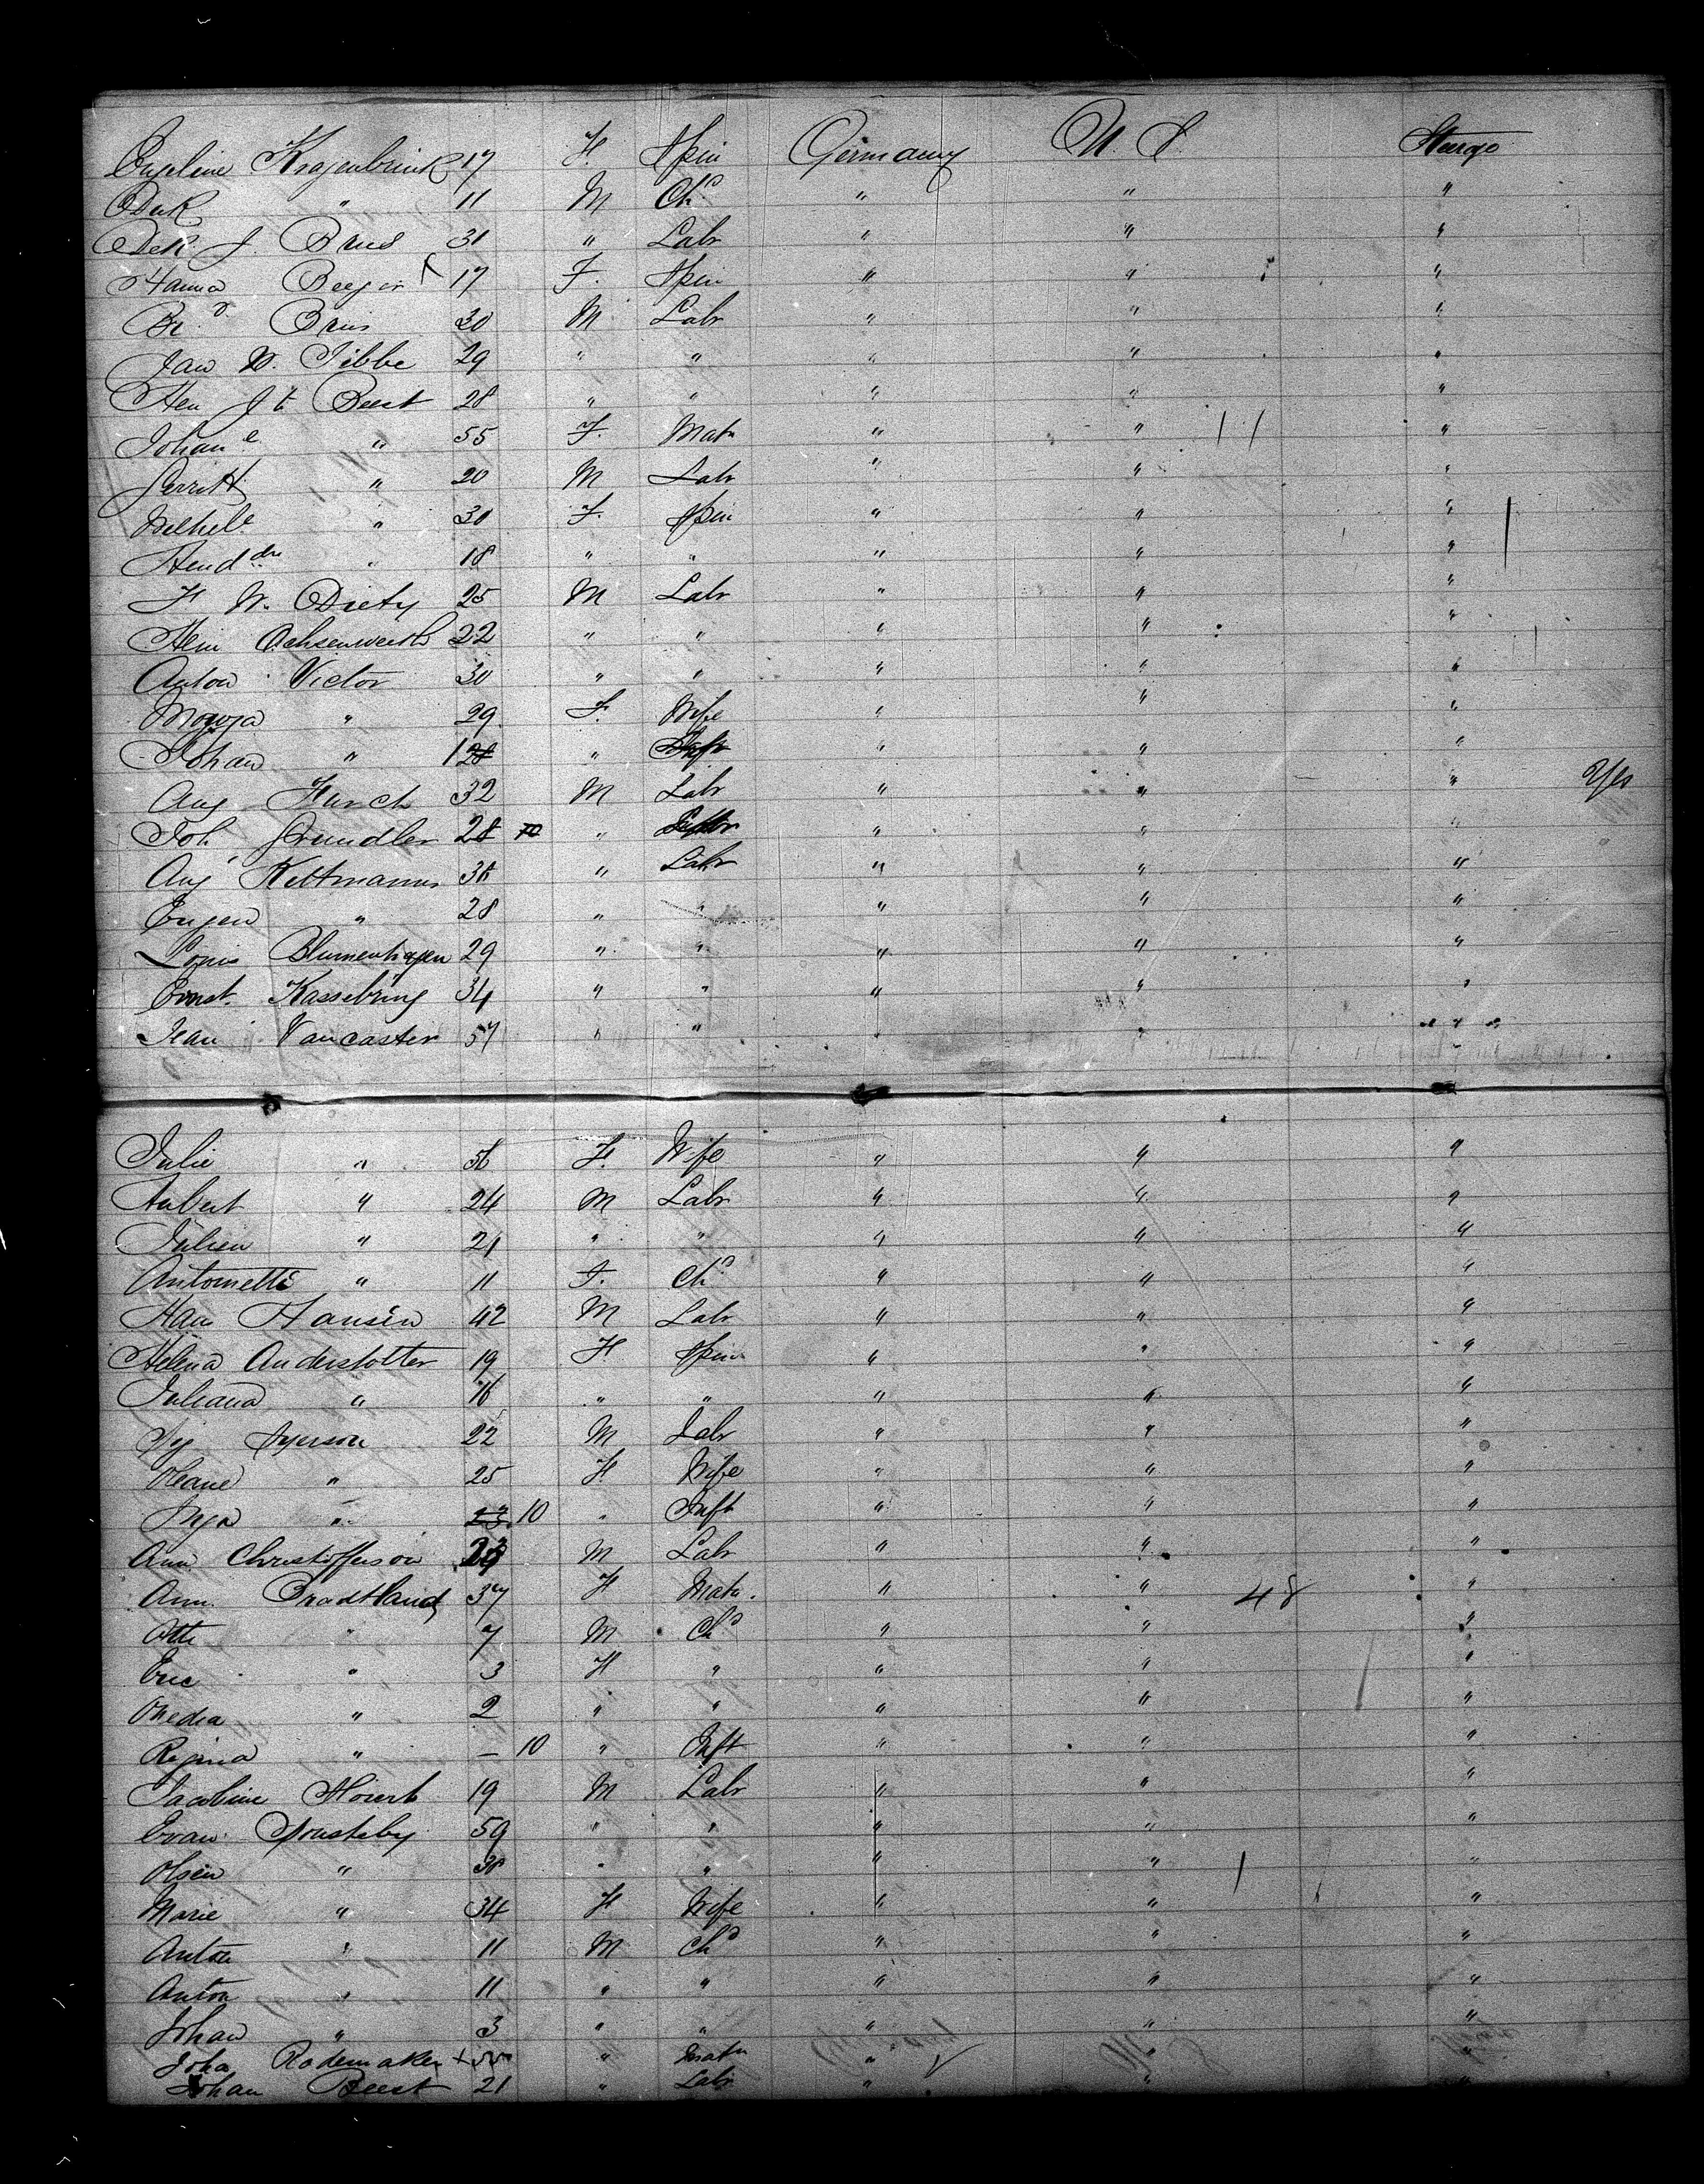 Engeline Kragenbrink 17 F. Spin Germany U.S. Steerge
Derk " 11 M Chd " " "
Derk J. Brus 31 " Labr " " "
Hanna Beeger 17 F. Spin " " "
Bd Brus 30 M Labr " " "
Jan W. Tibbe 29 " " " " "
Hen J te Beest 28 " " " " "
Johane " 55 F. Matn " " "
Gerritt " 20 M Labr " " "
Wilhele " 30 F. Spin " " "
Hend " 18 " " " " "
F W. Diety 25 M Labr " " "
Hein Ochsenwerth 22 " " " " "
Anton Victor 30 " " " " "
" 29 F. Wife " " "
Johan " " " " "
Aug Hurch 32 M Labr " " " Yes
Joh. Grundler 28 " " " "
Aug Kettmann " Labr " " "
Eugen " 28 " " " " "
Louis Blumenhagen 29 " " " " "
Ernst. Kassebring 34 " " " " "
Jean Vancaster 57 " " " " "
Julie " 56 F. Wife " " "
Hubert " 24 M Labr " " "
Julien " 21 " " " " "
Antoinette " 11 F. Chd " " "
Han Hansen 42 M Labr " " "
Helena Anderstotter 19 F Spin " " "
Juliana " 16 " " " " "
Syerson 22 M Labr " " "
Oleane " 25 F Wife " " "
Inga " 10 " Inft " " "
Ann Christofferson M Labr " " "
Ann. Bradtland 37 F Matn. " " 48 "
Otte " 7 M Chd " " "
Eric " 3 F " " " "
Thedia " 2 " " " " "
Regina " — 10 " Inft " " "
Jacobine Hoiert 19 M Labr " " "
Evan Sonsteby 59 " " " " "
Olsen " 38 " " " " "
Marie " 34 F Wife " " "
Anton " 11 M Chd " " "
Anton " 11 " " " " "
Johan " 3 " " " " "
Joha Rodemaker + 55 " Matn " " "
Johan Beest 21 " Labr " " "